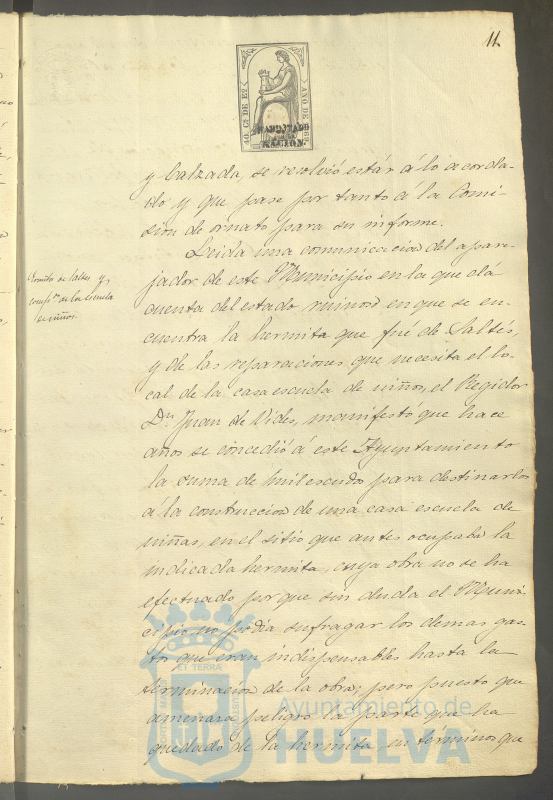 11
40 Cs DE Eo
AÑO DE 1869
HABILITADO
POR LA
NACION.
y Calzada, se resolvió estár á lo acorda-
do y que pase por tanto á la Comi-
sion de ornato para su informe.
Ermita de Saltes y
comps.on de la Escuela
de niños.
Leida una comunicacion del apare-
jador de este Municipio en la que dá
cuenta del estado ruinoso en que se en-
cuentra la hermita que fué de Saltés,
y de las reparaciones que necesita el lo-
cal de la casa escuela de niños, el Regidor
Dn. Juan de Vides, manifesto que hace
años se concedió á este Ayuntamiento
la suma de mil escudos para destinarlos
a la construccion de una casa escuela de
niñas, en el sitio que antes ocupaba la
indicada hermita, cuya obra no se ha
efectuado por que sin duda el Muni-
cipio no podia sufragar los demas gas-
tos que eran indispensables hasta la
terminacion de la obra; pero puesto que
amenaza peligro la parte que ha
quedado de la hermita, en términos que
Ayuntamiento de
HUELVA